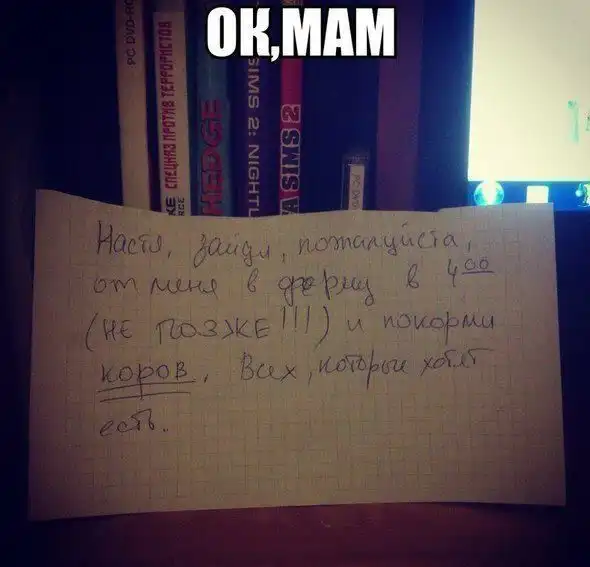 ОК,МАМ
PC DVD-RO
СПЕЦНАЗ ПРОТИВ ТЕРРОРИСТОВ
HEDGE
SIMS 2: NIGHTL
A SIMS 2
PC DVD
Настя, зайди, пожалуйста,
от меня в ферму в 4 00
(НЕ ПОЗЖЕ!!!) и покорми
коров. Всех, которые хотят
есть.